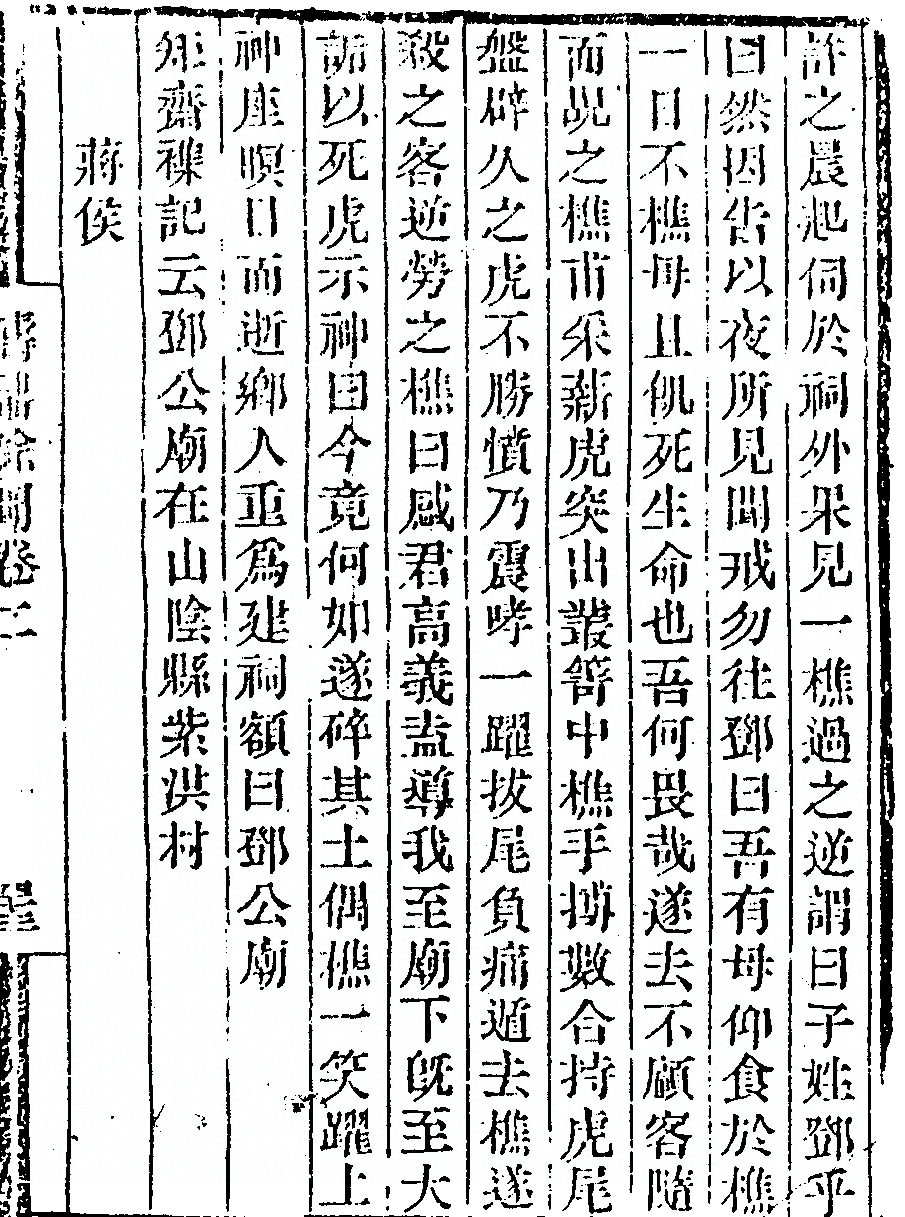 許之晨起伺於祠外果見一樵過之逆謂曰子姓鄧乎
曰然因告以夜所見聞戒勿往鄧曰吾有母仰食於樵
一日不樵母且飢死生命也吾何畏哉遂去不顧客隨
而覘之樵甫采薪虎突出叢箐中樵手搏數合持虎尾
盤辟久之虎不勝憤乃震哮一躍拔尾負痛遁去樵遂
殺之客逆勞之樵曰感君高義盍導我至廟下旣至大
詬以死虎示神曰今竟何如遂碎其土偶樵一笑躍上
神座瞑目而逝鄉人重為建祠額曰鄧公廟
齋襍記云鄧公廟在山陰縣紫洪村
蔣侯
餘聞卷二